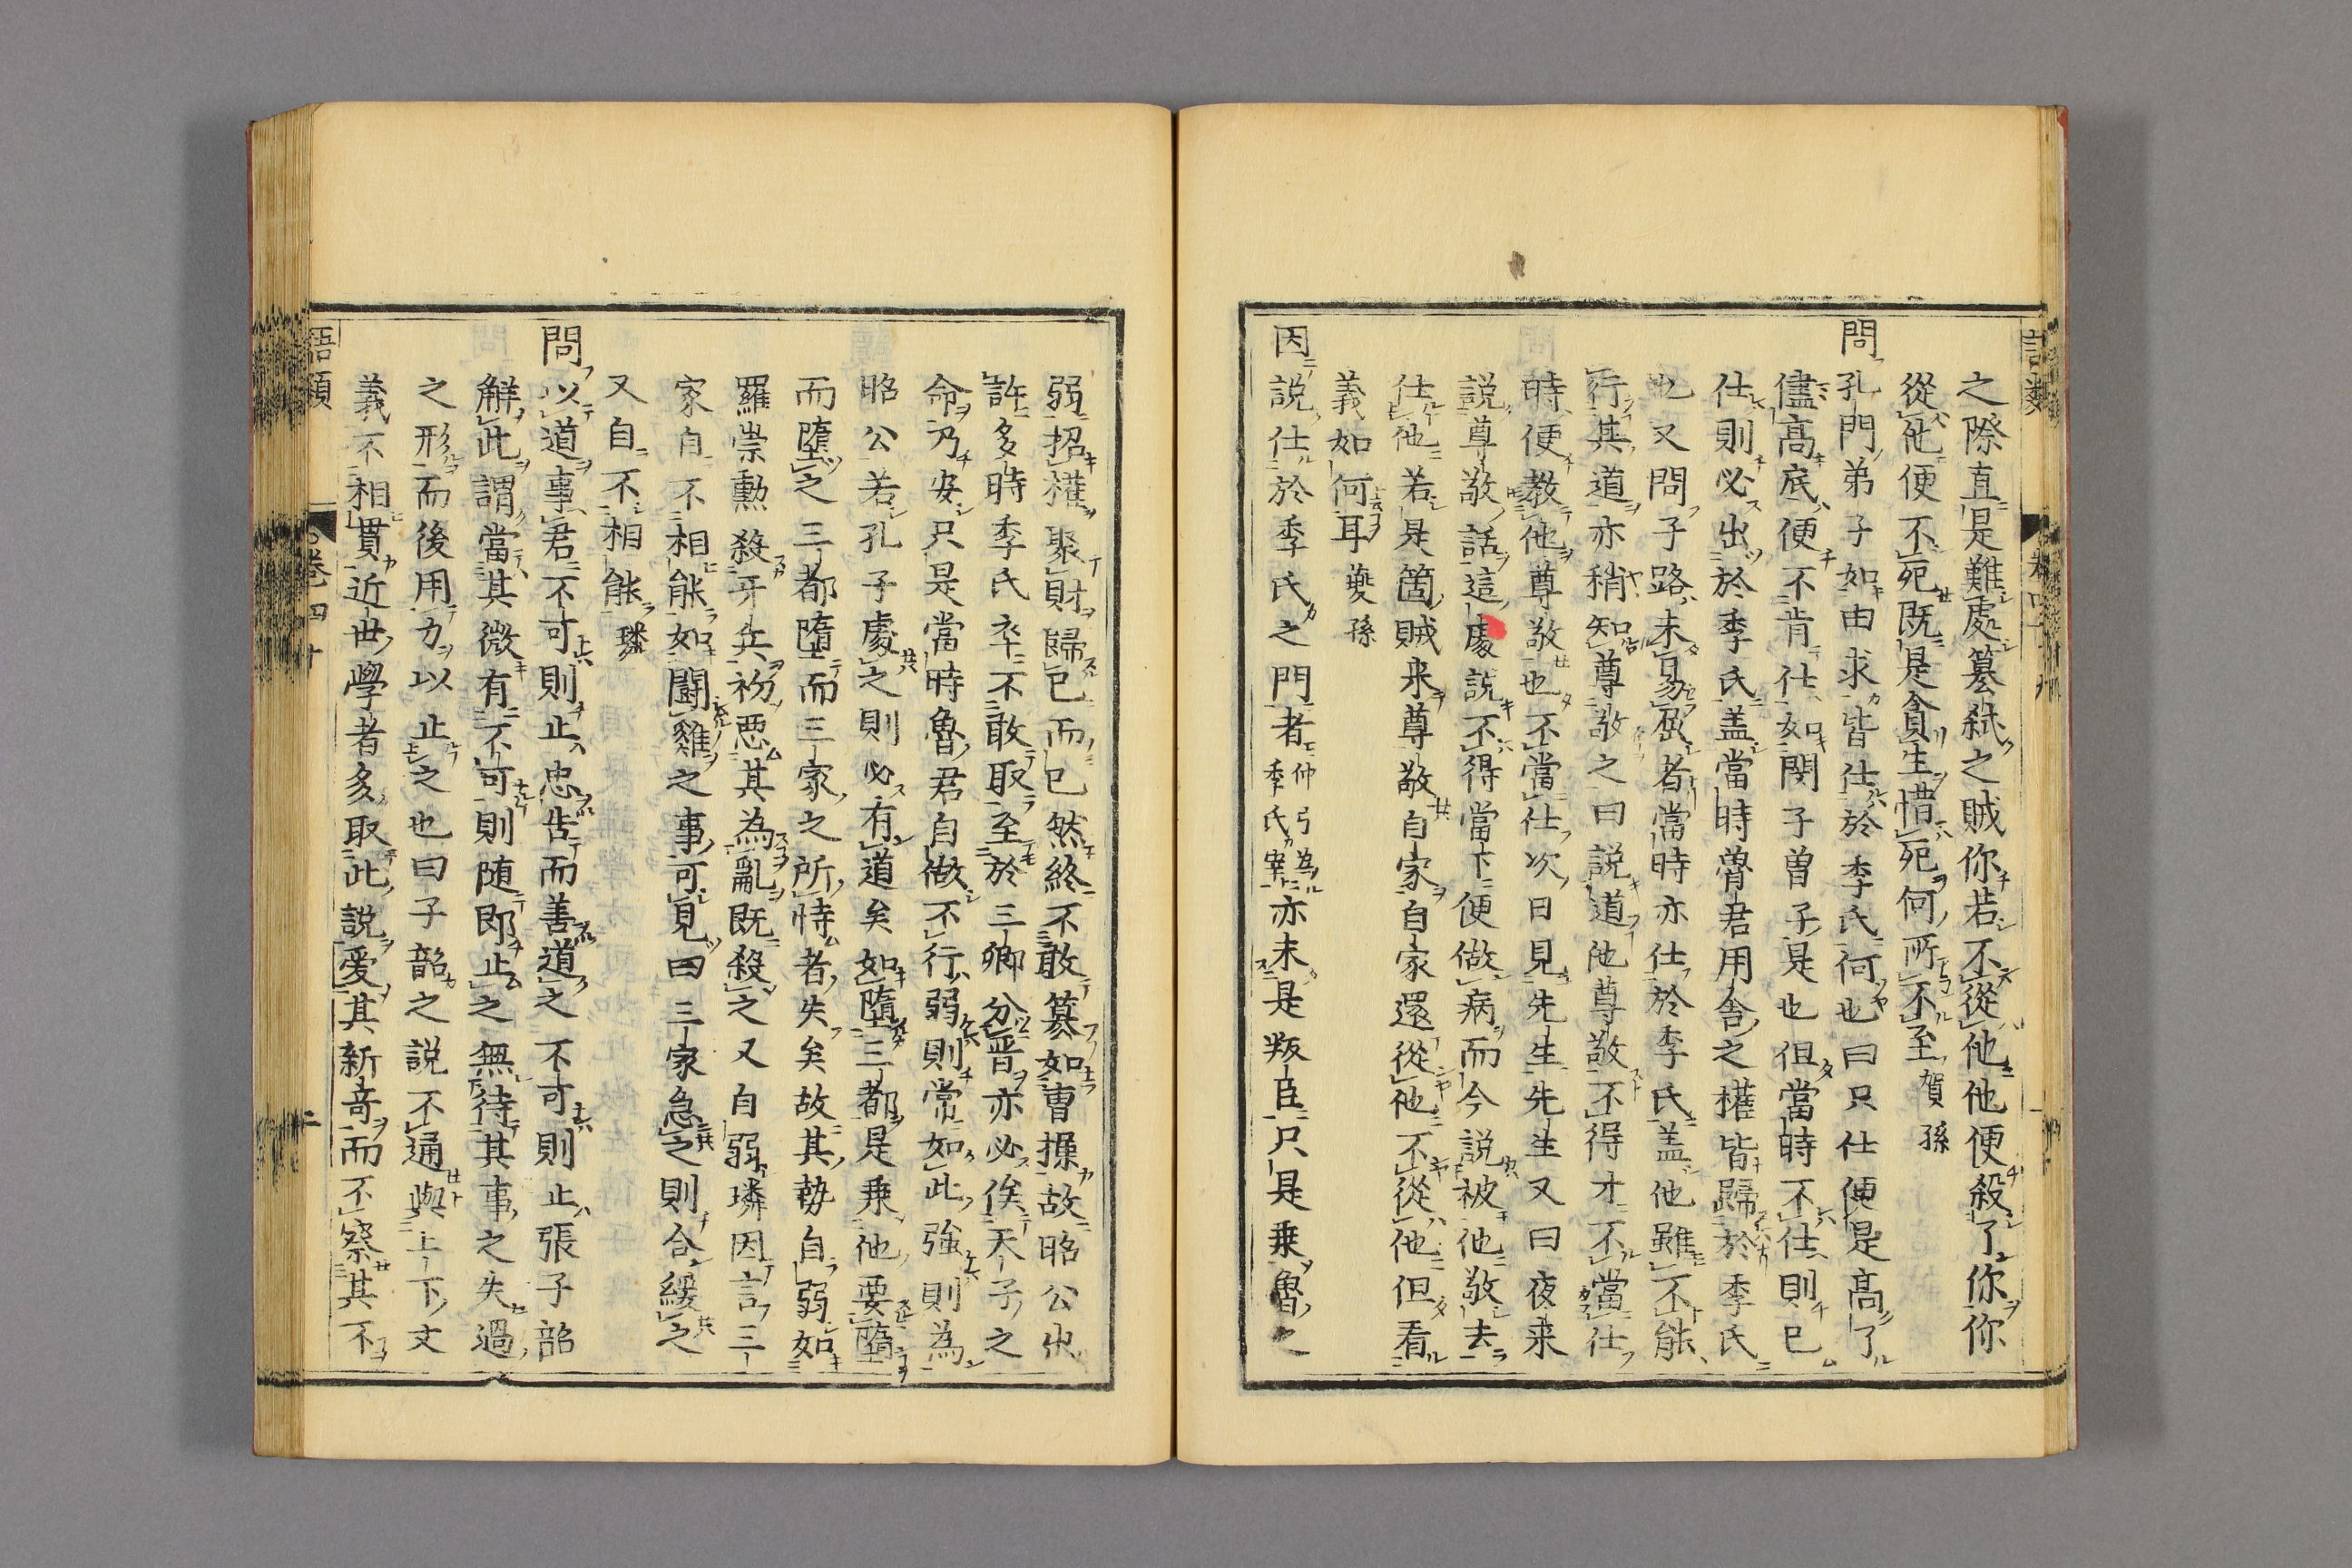 之際直是難處簒弑之賊你若不從他他便殺了你你
從他便不死既是貪生惜死何所不至賀孫
問孔門弟子如由求皆仕於季氏何也曰只仕便是髙了
儘髙底便不肯仕如閔子曽子是也但當時不仕則已
仕則必出於季氏盖當時魯君用舎之權皆歸於季氏
也又問子路未易屈者當時亦仕於季氏盖他雖不能
行其道亦稍知尊敬之曰説道他尊敬不得才不當仕
時便教他尊敬也不當仕次日見先生先生又曰夜来
説尊敬話這處説不得當下便做病而今説被他敬去
仕他若是箇賊来尊敬自家自家還從他不從他但看
義如何耳夔孫
因説仕於季氏之門者仲弓為季氏宰亦未是叛臣只是乗魯之
弱招權聚財歸已而已然終不敢簒如曹操故昭公出
許多時季氏卒不敢取至於三卿分晋亦必俟天子之
命乃安只是當時魯君自做不行弱則常如此強則為
昭公若孔子處之則必有道矣如墮三都是乗他要墮
而墮之三都墮而三家之所恃者失矣故其勢自弱如
羅崇勲殺牙兵初惡其為亂既殺之又自弱璘因言三
家自不相能如鬪雞之事可見曰三家急之則合緩之
又自不相能璘
問以道事君不可則止忠告而善道之不可則止張子韶
解此謂當其微有不可則随即止之無待其事之失過
之形而後用力以止之也曰子韶之説不通與上下文
義不相貫近世學者多取此説愛其新竒而不察其不
語類
卷四十